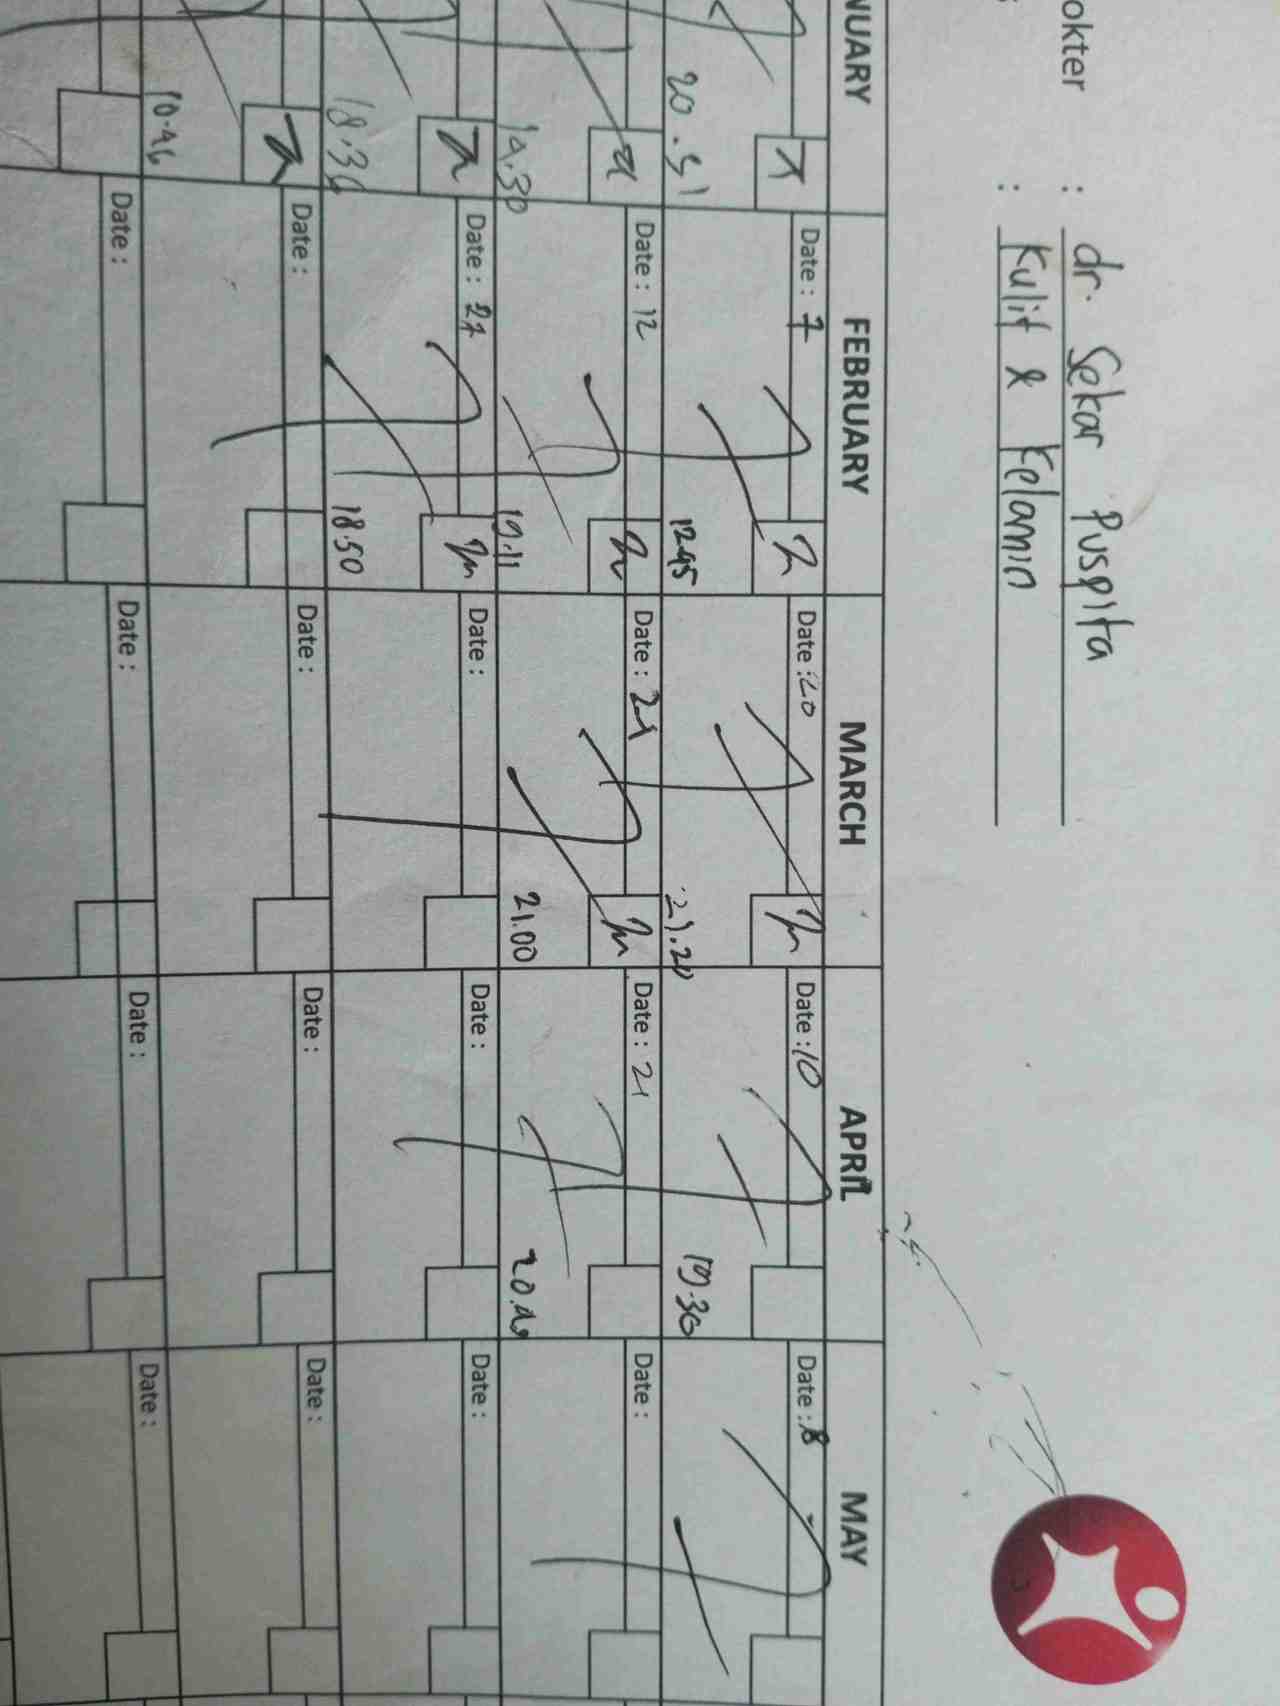 okter : dr. Sekar Puspita
: Kulit & Kelamin
NUARY FEBRUARY MARCH APRIL MAY
Date : 7 Date : 20 Date : 10 Date : 8
20.51 12.45 21.20 19.30
Date : 12 Date : 21 Date : 21 Date :
14.30 19.11 21.00
Date : 27 Date : Date : Date :
18.36 18.50
Date : Date : Date : Date :
10.46
Date : Date : Date : Date :